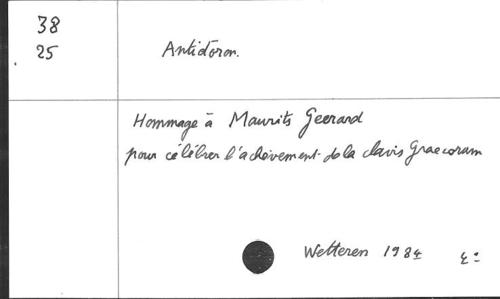 38
25
Antidōron.
Hommage à Maurits Geerard
pour célébrer l'achèvement de la clavis Graecorum
Wetteren 1984 4°